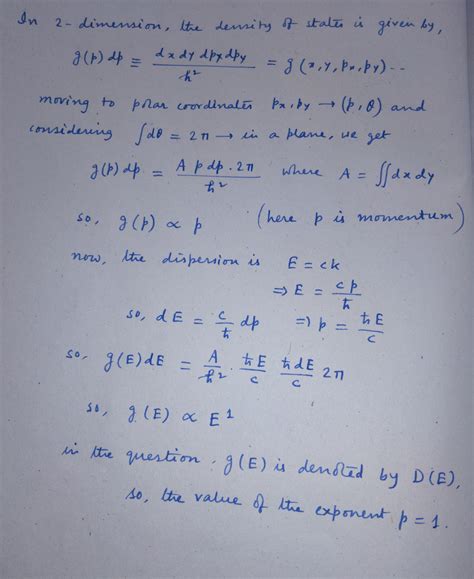 In 2-dimension, the density of states is given by,
g(p) dp ≡ dx dy dpx dpy / h² = g(x, y, px, py)--
moving to polar coordinates px, py → (p, θ) and
considering ∫dθ = 2π → in a plane, we get
g(p) dp = A p dp . 2π / h² where A = ∬dxdy
so, g(p) ∝ p (here p is momentum)
now, the dispersion is E = ck
⇒ E = cp/ħ
so, dE = c/ħ dp ⇒ p = ħE/c
so, g(E)dE = A/h² . ħE/c ħdE/c 2π
so, g(E) ∝ E¹
in the question, g(E) is denoted by D(E),
so, the value of the exponent p = 1.